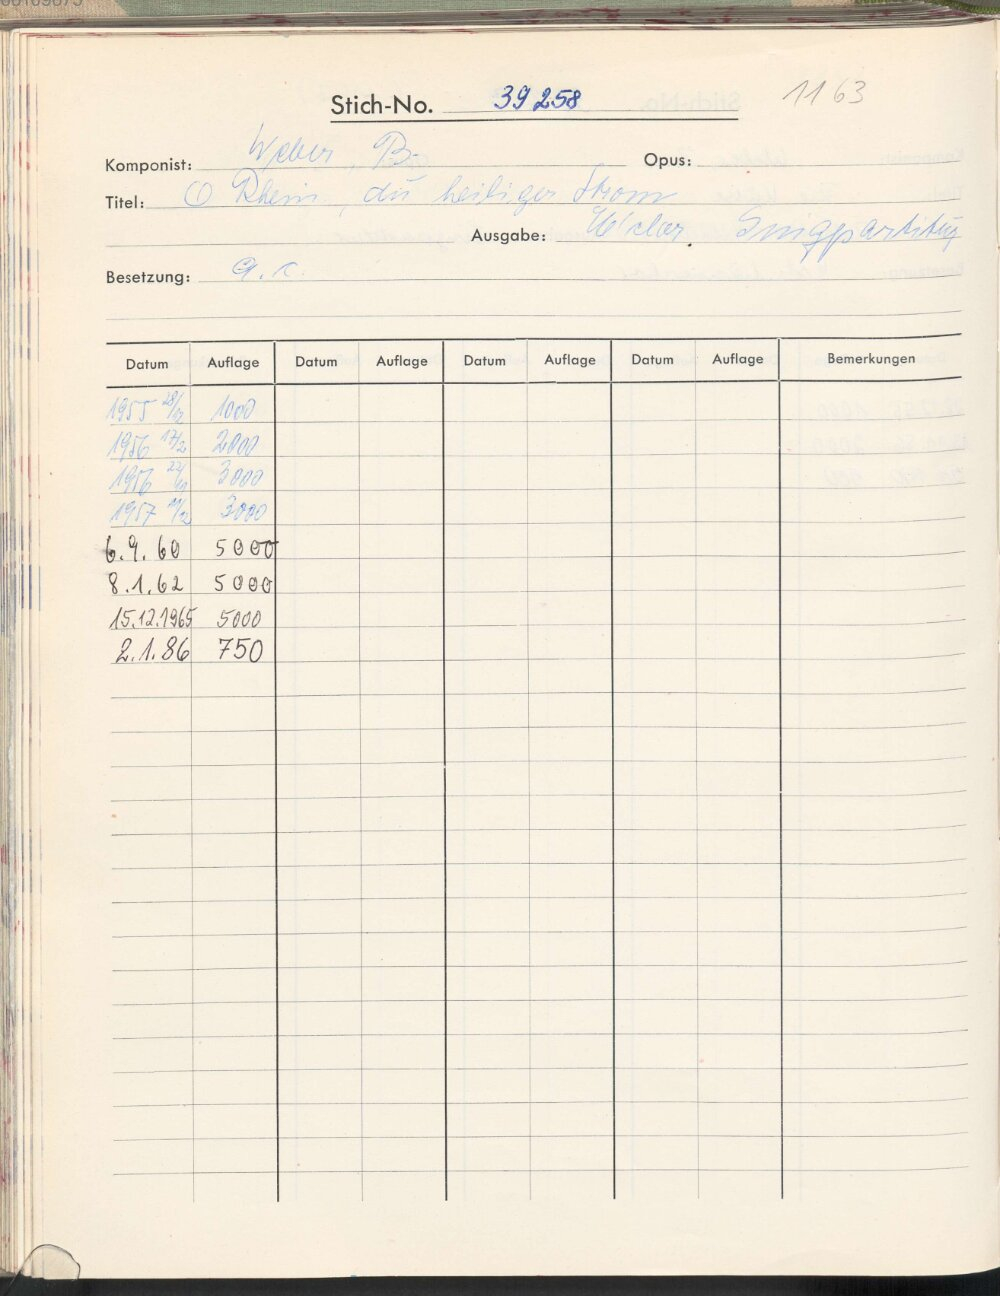 Stich-No. 39258 1163
Komponist: Weber, B. Opus:
Titel: O Rhein, du heiliger Strom
Ausgabe: Singpartitur
Besetzung: a. c.
Datum Auflage Datum Auflage Datum Auflage Datum Auflage Bemerkungen
1955 28/12 1000
1956 17/2 2000
1956 3000
1957 3000
6.9.60 5000
8.1.62 5000
15.12.1965 5000
2.1.86 750